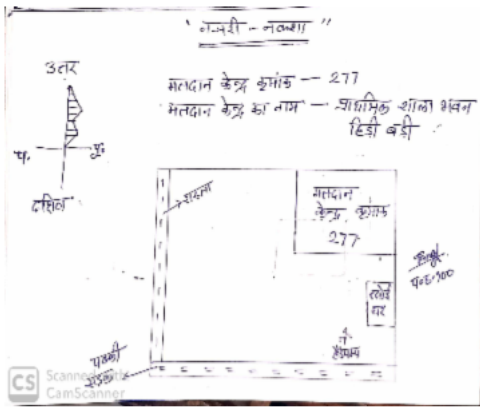 "नजरी - नक्शा"
उत्तर
मतदान केन्द्र क्रमांक -- 277
मतदान केन्द्र का नाम -- प्राथमिक शाला भवन
हिड़ी बड़ी
प. पू.
दक्षिण
रास्ता
मतदान
केन्द्र क्रमांक
277
रसोई
घर
हैंडपम्प
पक्की
सड़क
CS Scanned with
CamScanner